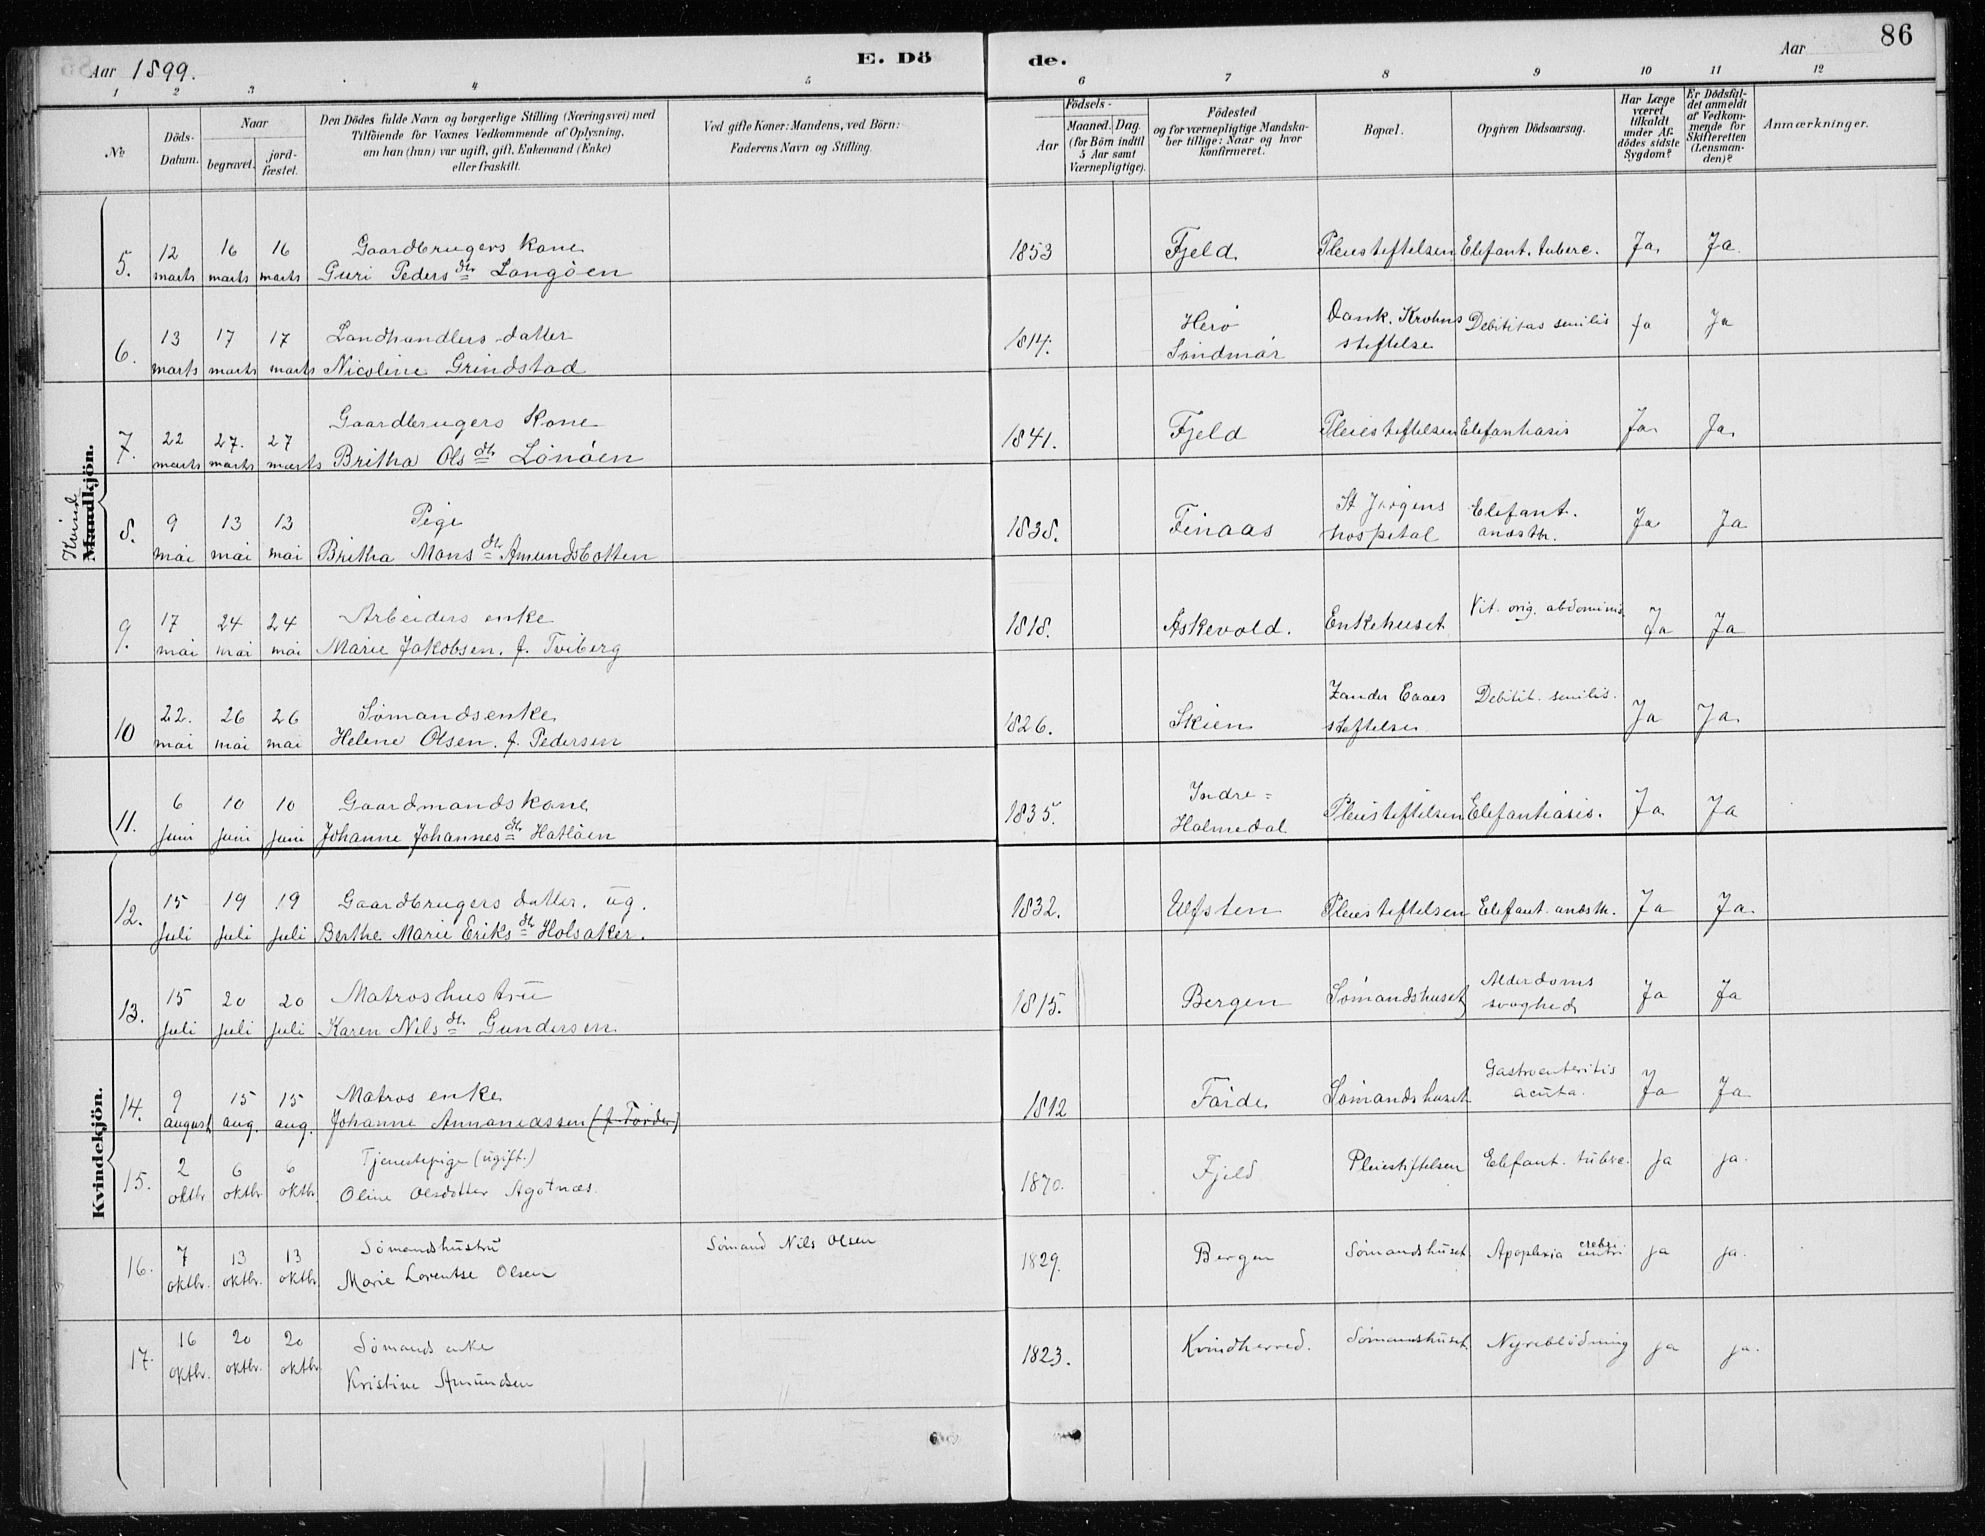 Aar 1899.
E. Dö
de.
Aar
86
1 2 3 4 5 6 7 8 9 10 11 12
№
Döds-Datum.
Naar
begravet.
jord-fæstet.
Den Dödes fulde Navn og borgerlige Stilling (Næringsvei) med
Tilföiende for Voxnes Vedkommende af Oplysning,
om han (hun) var ugift, gift, Enkemand (Enke)
eller fraskilt.
Ved gifte Koner: Mandens, ved Börn:
Faderens Navn og Stilling.
Födsels-
Aar
Maaned. Dag.
(for Börn indtil
5 Aar samt
Værnepligtige).
Födested
og for værnepligtige Mandska-
ber tillige: Naar og hvor
konfirmeret.
Bopæl.
Opgiven Dödsaarsag.
Har Læge
været
tilkaldt
under Af-
dödes sidste
Sygdom?
Er Dödsfal-
det anmeldt
af Vedkom-
mende for
Skifteretten
(Lensman-
den)?
Anmærkninger.
Kvinde
Mandkjön.
5. 12 marts 16 marts 16 marts Gaardbrugers kone
Guri Peders dtr Langöen 1853 Fjeld Pleiestiftelsen Elefant. tuberc. Ja Ja
6. 13 marts 17 marts 17 marts Landhandlers datter
Nicoline Grindstad 1814. Herö Söndmör Dank. Krohns stiftelse Debilitas senilis Ja Ja
7. 22 marts 27. marts 27 marts Gaardbrugers Kone
Britha Ols dtr Lönöen 1841. Fjeld Pleiestiftelsen Elefantiasis Ja Ja
8. 9 mai 13 mai 13 mai Pige
Britha Mons dtr Amundsbotten 1838. Finaas St Jørgens hospital Elefant. anæsth. Ja Ja
9. 17 mai 24 mai 24 mai Arbeiders enke
Marie Jakobsen. f. Tviberg 1818. Askevold. Enkehuset Vit. orig. abdominis Ja Ja
10 22. mai 26 mai 26 mai Sømandsenke
Helene Olsen. f. Pedersen 1826. Skien Zander Kaaes stiftelse Debilit. senilis. Ja Ja
11. 6 juni 10 juni 10 juni Gaardmandskone
Johanne Johannes dtr Hatlöen 1835. Indre-Holmedal Pleiestiftelsen Elefantiasis. Ja Ja
Kvindekjön.
12. 15 juli 19 juli 19 juli Gaardbrugers datter. ug.
Berthe Marie Eriks dtr Holsaker. 1832. Ulfsten Pleiestiftelsen Elefant. anæsth. Ja Ja
13. 15 juli 20 juli 20 juli Matroshustru
Karen Nils dtr Gundersen 1815. Bergen Sömandshuset Alderdoms svaghed Ja Ja
14. 9 august 15 aug. 15 aug. Matros enke
Johanne Annaneassen (f. Förde) 1812 Förde Sömandshuset Gastroenteritis acuta. Ja Ja
15. 2 oktbr 6 oktbr 6 oktbr Tjenestepige (ugift.)
Oline Olsdotter Agotnæs. 1870. Fjeld Pleiestiftelsen Elefant. tuberc. ja ja.
16. 7 oktbr. 13 oktbr. 13 oktbr. Sømandshustru
Marie Lorentse Olsen Sømand Nils Olsen 1829. Bergen Sømandshuset Apoplexia cerebri ja ja.
17. 16 oktbr. 20 oktbr. 20 oktbr. Sømands enke
Kristine Amundsen 1823. Kvindherred. Sømandshuset Nyreblödning ja ja.